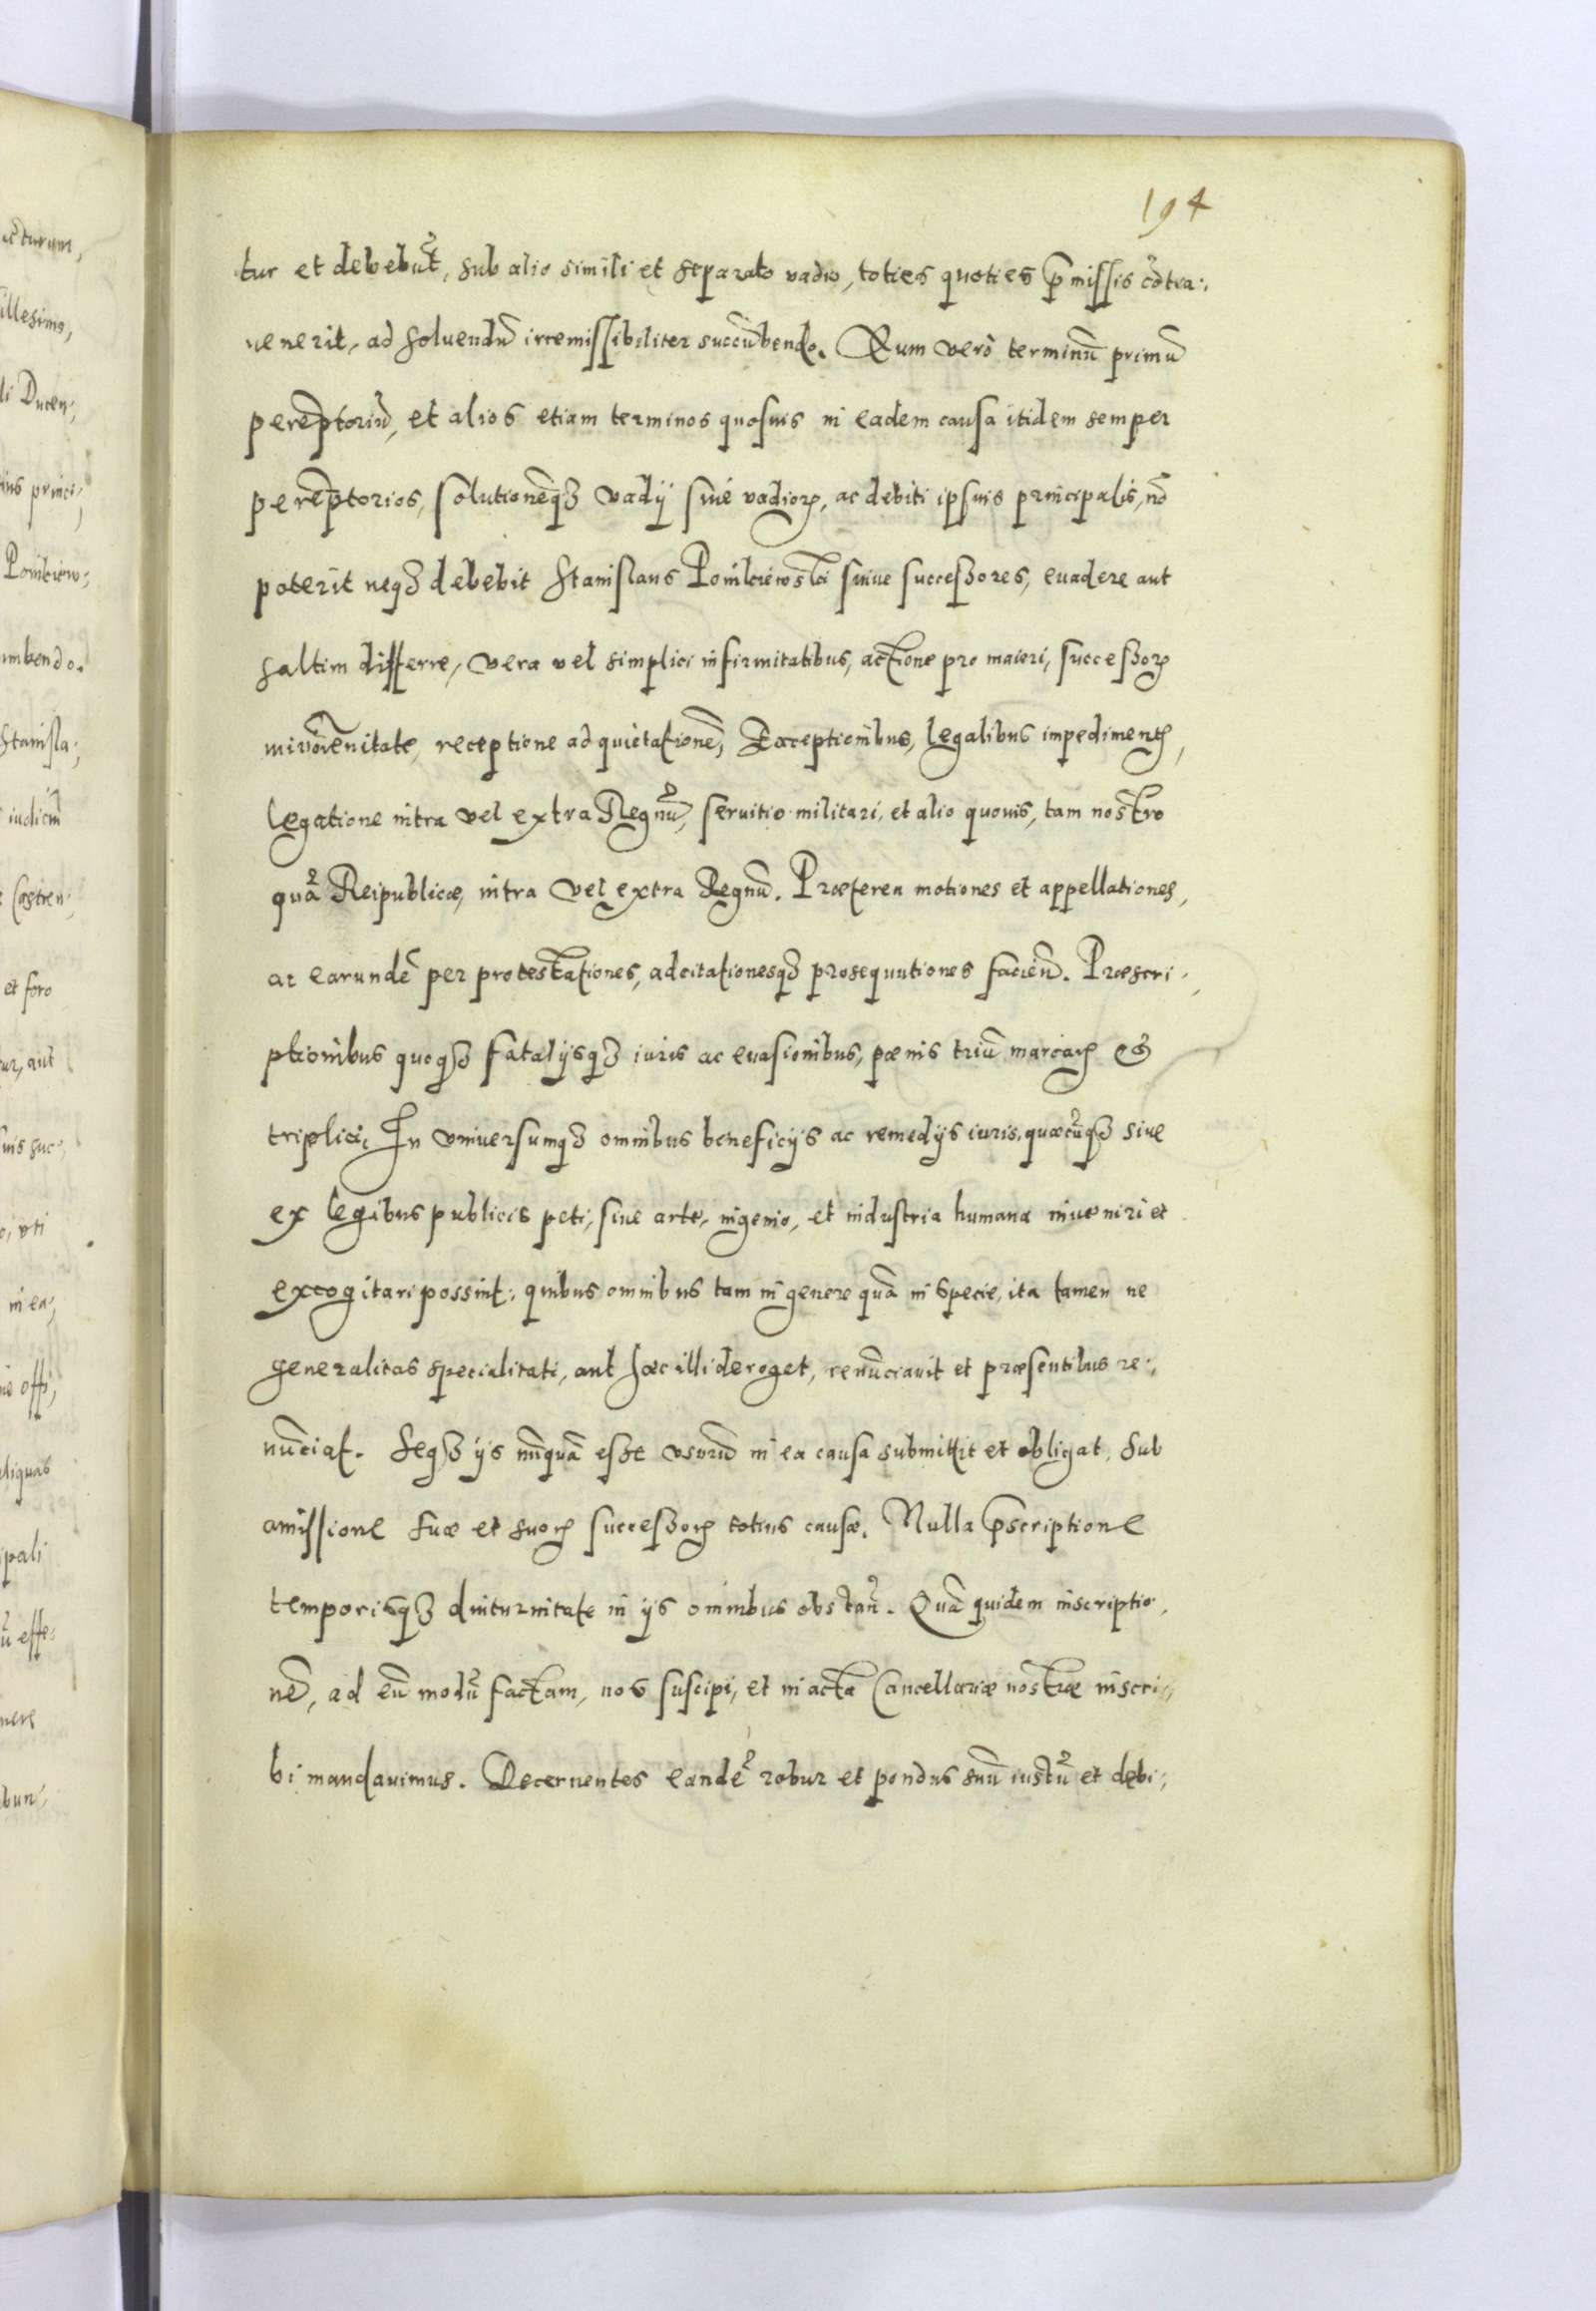 194
tur et debebũt, sub alio simili et separato vadio, toties quoties p̃missis cõtra:
uenerit, ad soluendũ irremissibiliter succũbendo. Eum verò terminũ primũ
perẽptoriũ, et alios etiam terminos quosuis in eadem causa itidem semper
perẽptorios, solutionẽqȝ vadij siue vadioꝝ, ac debiti ipsius principalis, nõ
poterit neqȝ debebit Stanislaus siue successores, euadere aut
saltim differre, vera vel simplici infirmitatibus, actione pro maiori, successoꝝ
minorẽnitate, receptione ad quietationẽ, Exceptionibus, legalibus impedimentꝭ,
legatione intra vel extra Regnũ, seruitio militari, et alio quouis, tam nostro
quã Reipublicæ, intra vel extra Regnũ. Præterea motiones et appellationes,
ac earundẽ per protestationes, adcitationesqȝ prosequutiones faciẽn̄. Præscri,
ptionibus quoqȝ fatalijsqȝ iuris ac euasionibus, pœnis triũ marcaꝝ &
triplici, In vniuersumqȝ omnibus beneficijs ac remedijs iuris, quæcũqȝ siue
ex legibus publicis peti, siue arte, ingenio, et industria humana inueniri et
excogitari possint: quibus omnibus tam in genere quã in specie, ita tamen ne
generalitas specialitati, aut hæc illi deroget, renũciauit et præsentibus re:,
nũciat. Seqȝ ijs nũquã esse vsurũ in ea causa submittit et obligat, sub
amissione suæ et suoꝝ successoꝝ totius causæ. Nulla p̃scriptione
temporisqȝ diuturnitate in ijs omnibus obstañ. Quã quidem inscriptio,
nẽ, ad eũ modũ factam, nos suscipi, et in acta Cancellariæ nostræ inscri,
bi mandauimus. Decernentes eandẽ robur et pondus suũ iustũ et debi;